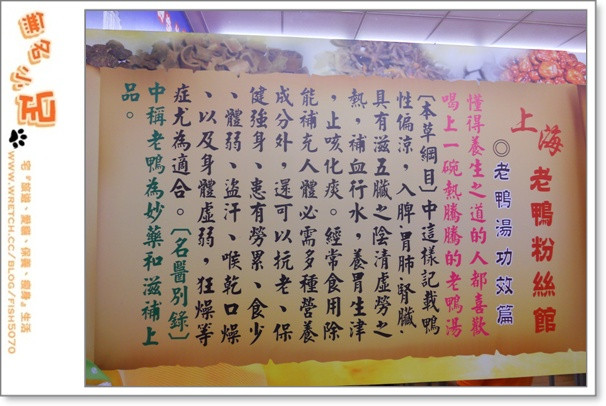 上海老鴨粉絲館
◎老鴨湯功效篇
懂得養生之道的人都喜歡
喝上一碗熱騰騰的老鴨湯
〔本草綱目〕中這樣記載鴨
性偏涼，入脾‧胃‧肺‧腎臟‧
具有滋五臟之陰清虛勞之
熱，補血行水，養胃生津
，止咳化痰。經常食用除
能補充人體必需多種營養
成分外，還可以抗老、保
健強身、患有勞累、食少
、體弱、盜汗、喉乾口燥
、以及身體虛弱，狂燥等
症尤為適合。〔名醫別錄〕
中稱老鴨為妙藥和滋補上
品。
無名小足
宅『旅遊、愛貓、保養、瘦身』生活
WWW.WRETCH.CC/BLOG/FISH5070